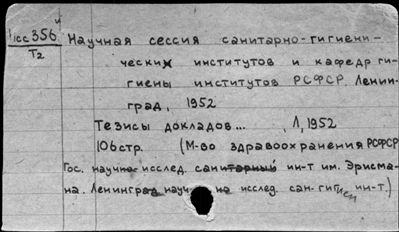 Iсс 356 ч
Т2
Научная сессия санитарно-гигиени-
ческих институтов и кафедр ги-
гиены институтов РСФСР. Ленин-
град, 1952
Тезисы докладов... , Л, 1952
106 стр. (М-во здравоохранения РСФСР
Гос. научно исслед. санитарный ин-т им. Эрисма-
на. Ленинград науч на исслед. сан-гигиен ин-т.)